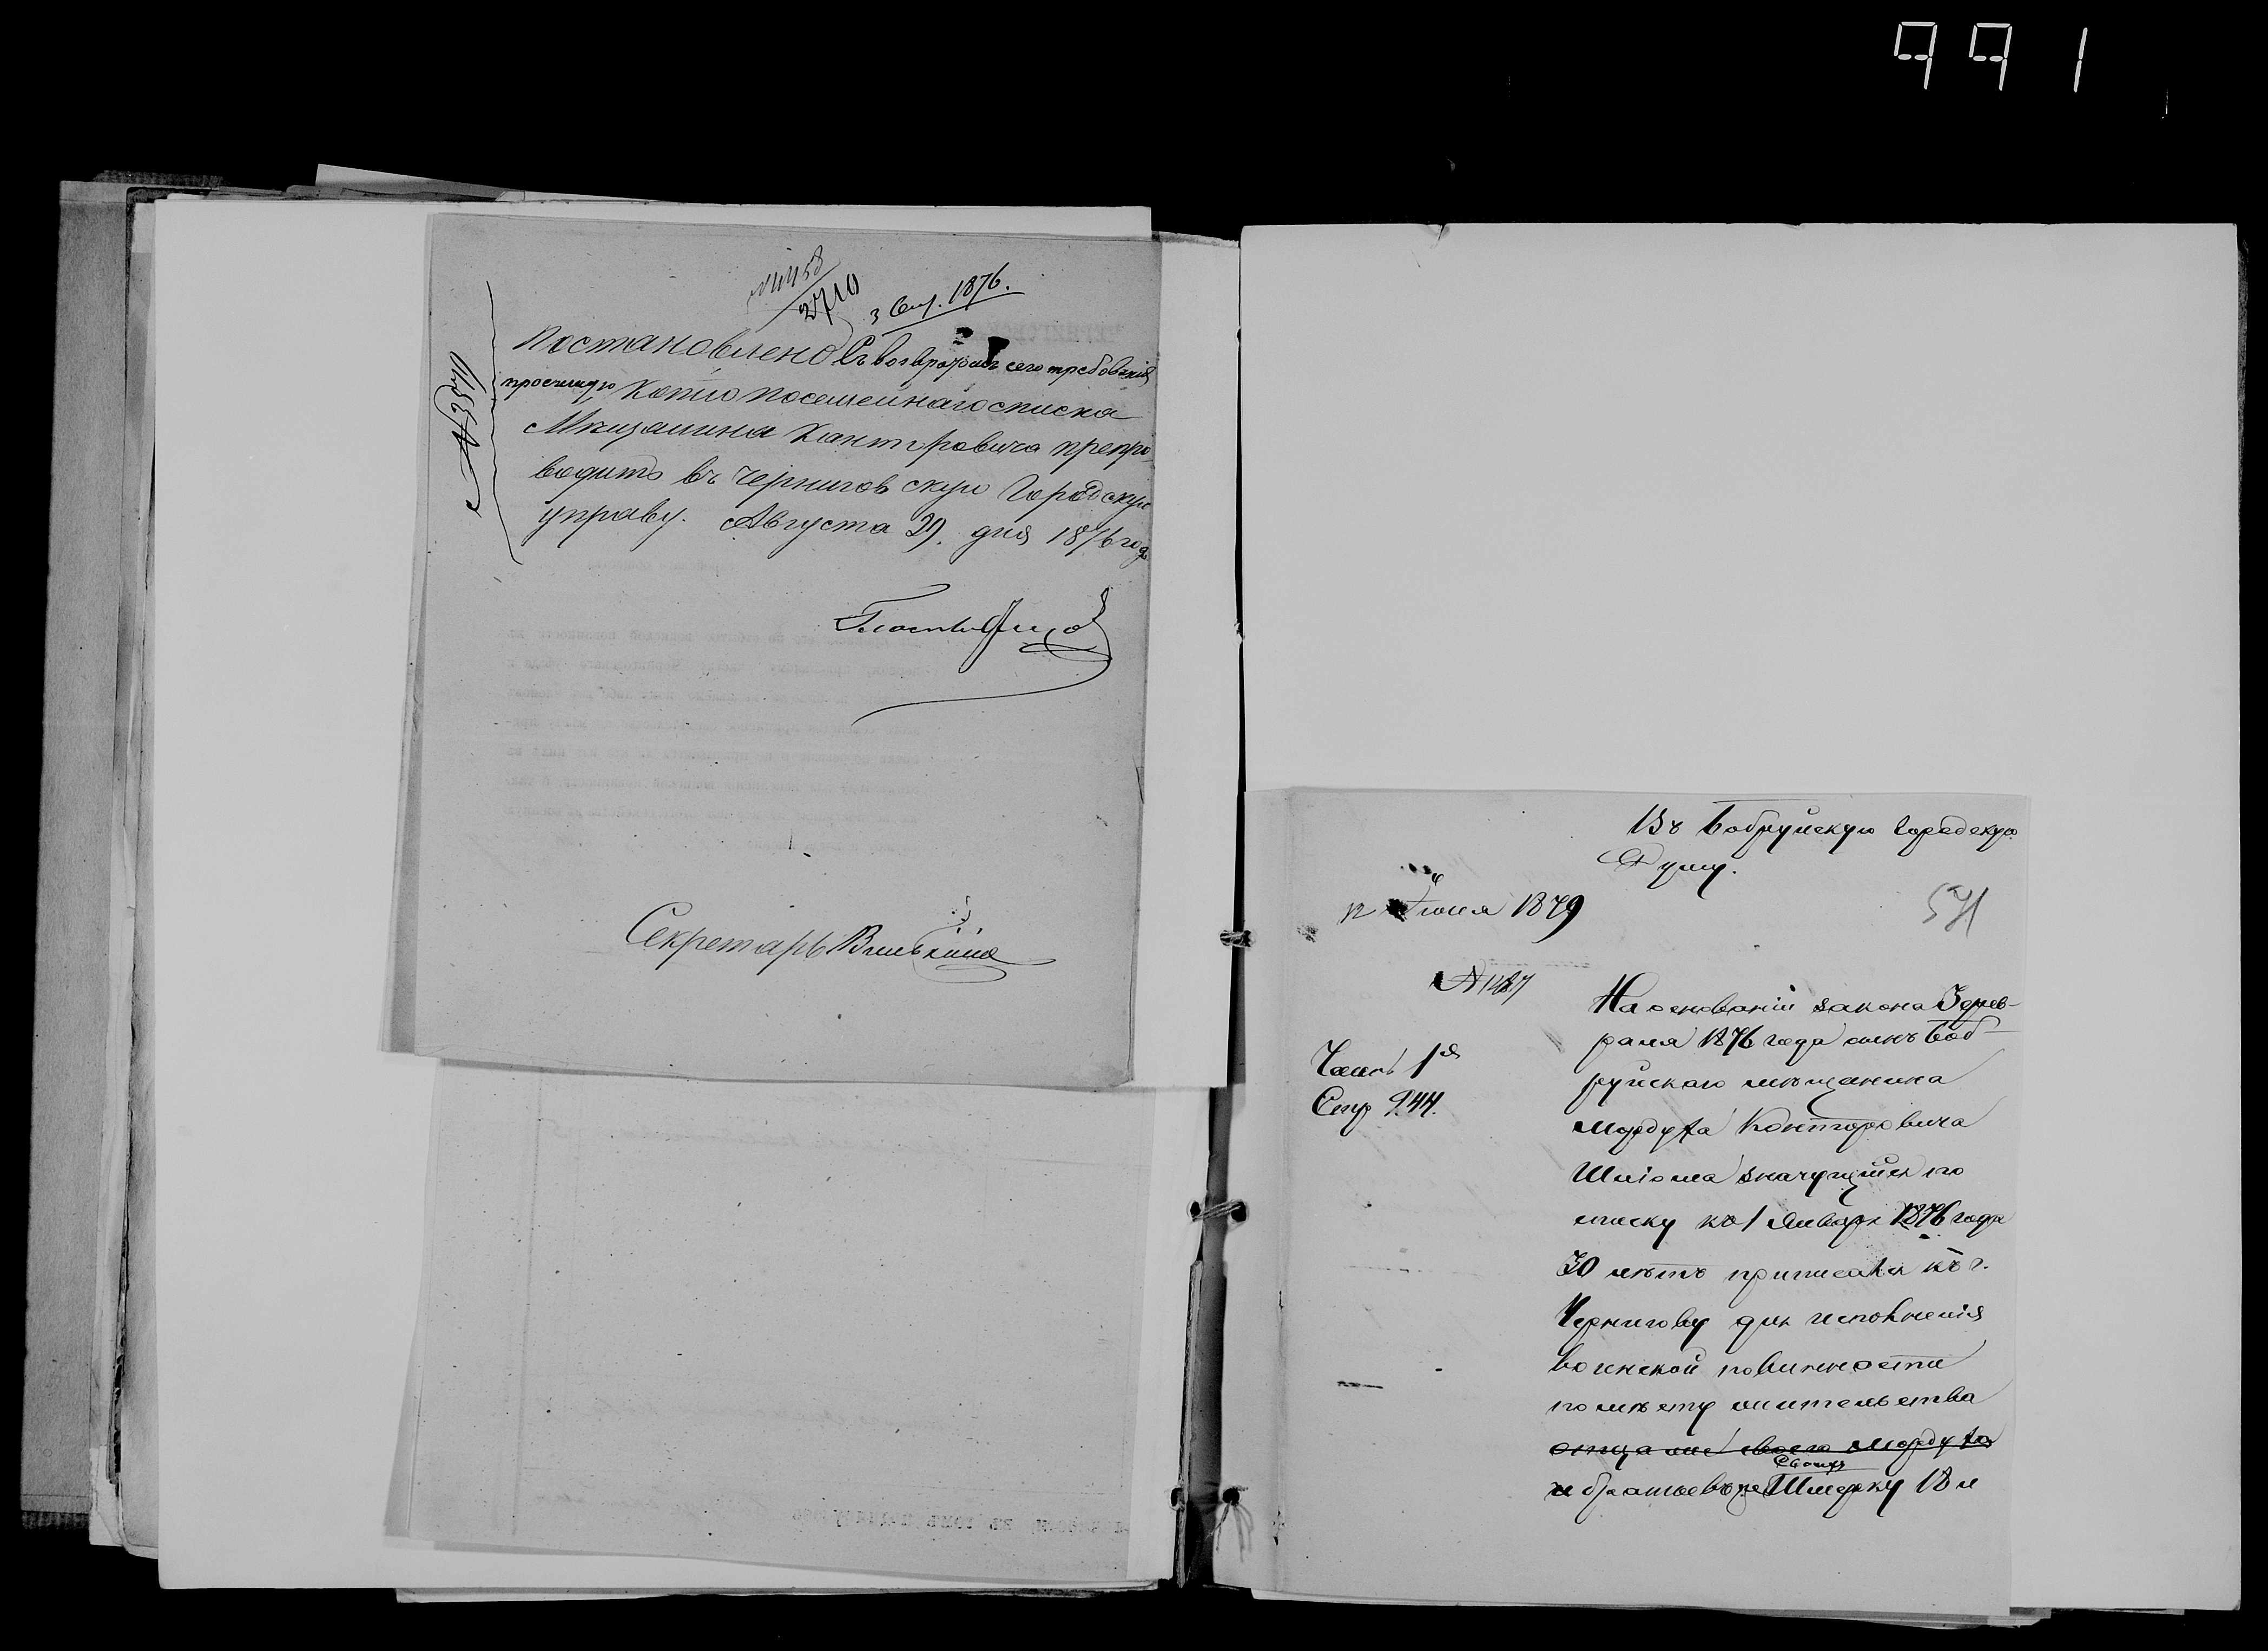 991
2710
3 Сен. 1876.
Постановлено Съ возвратомъ сего требованія
просимую копію посемейнаго списка
Мѣщанина Канторовича препро-
водить въ Черниговскую Городскую
управу. Августа 29. дня 1876 года
№ 3510
Секретарь
Въ Бобруйскую Городскую
Думу.
12 Іюня 1879
571
№ 1487
Часть 1я
Стр 944.
На основаніи закона 3 Фев-
раля 1876 года сынъ Боб-
руйскаго мѣщанина
Мордуха Канторовича
Шліома значущійся по
списку къ 1 Января 1876 года
30 лѣтъ приписался къ г.
Чернигову для исполненія
воинской повинности
по мѣсту жительства
отца своего Мордуха
своихъ
и братьевъ Шмерку 18 и